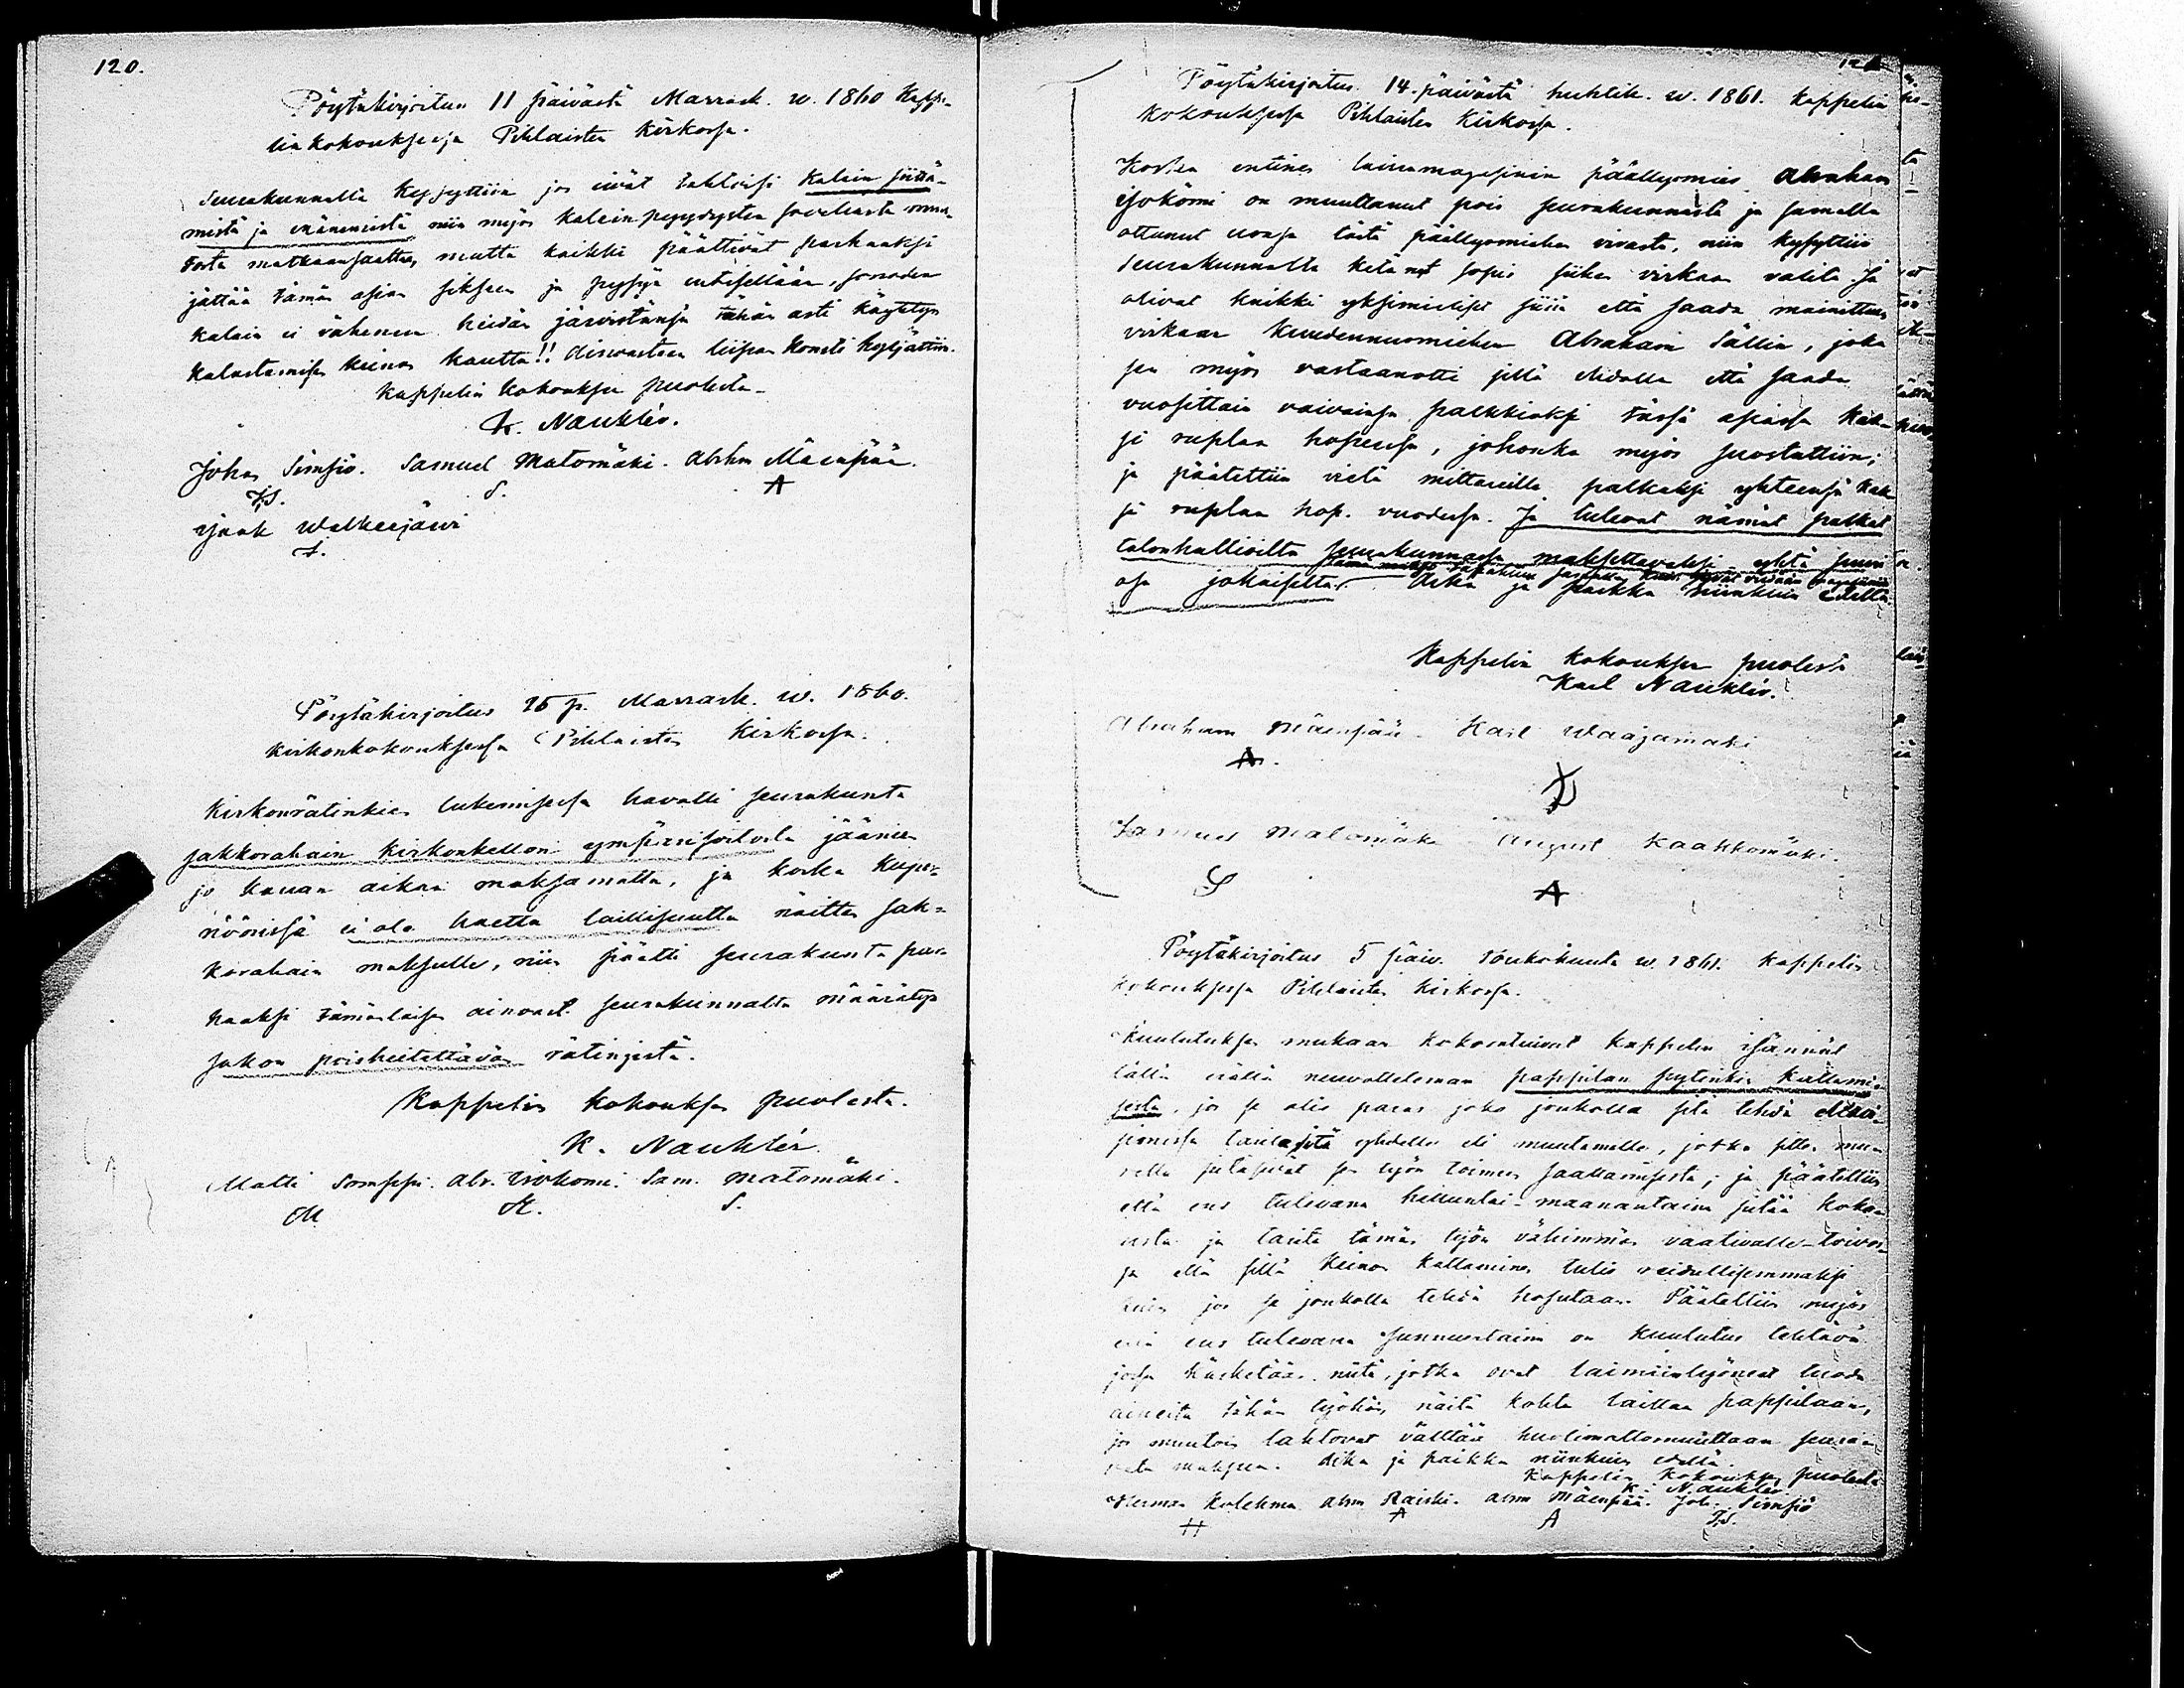 120.
Pöytäkirjoitus 11 päivästä Marrask. w. 1860 Kappe-
linkokouksessa Pihlaisten Kirkossa.
Seurakunnalta kysyttiin jos eivät tahtoisi kalain siittä-
mistä ja enänemistä niin myös kalain pyydysten
matkaansaattaa, mutta kaikki päättivät parhaaksi
jättää tämän asian sikseen ja pysyä entisellään, jonoden
kalain ei vähenevän heidän järvistänsä tähän asti käytetyn
kalastamisen keinon kautta!! kysyjättiin.
Kappelin kokouksen puolesta
K. Nauklér.
Johan Simsiö. Samuel Matomäki. Abrhm Mäenpää.
J.S. S. A
Isaak Walkeejärvi
I.
Pöytäkirjoitus 25 p. Marrask. w. 1860.
Kirkonkokouksessa Pihlaisten Kirkossa.
Kirkonrätinkien lukemisessa havatti seurakunta
sakkorahain kirkonkellon ympärisoitosta jäänen
jo kauan aikaa maksamatta, ja koska Kuper-
nöörissä ei ole haettu laillisuutta näitten sak-
korahain maksulle, niin päätti seurakunta par-
haaksi tämänlaisen ainoast. seurakunnalta määrätyn
sakon poisheitettävän rätingistä.
Kappelin Kokouksen puolesta.
K. Nauklér.
Matti Somppi. Abr. Isokömi. Sam. Matomäki.
M A. S.
121
Pöytäkirjoitus 14. päivästä huhtik. w. 1861. Kappelin
kokouksessa Pihlaisten Kirkossa.
Koska entinen lainamagasinin päällysmies Abraham
Isokömi on muuttanut pois seurakunnasta ja samalla
ottanut eronsa tästä päällysmiehen virasta, niin kysyttiin
seurakunnalta ketä nyt sopis siihen virkaan valita. Ja
olivat kaikki yksimieliset siitä että saada mainittuun
virkaan Kuudennusmiehen Abraham Sällin, joka
sen myös vastaanotti sillä ehdolla että saada
vuosittain vaivainsa palkkioksi tässä asiassa kak-
si ruplaa hopeassa, johonka myös suostuttiin;
ja päätettiin vielä mittareille palkaksi yhteensä kak-
si ruplaa hop. vuodessa. Ja tulevat nämät palkat
talonhallioilta seurakunnassa maksettavaksi yhtä suuri
osa jokaiselta. Aika ja paikka niinkuin edellä.
Kappelin kokouksen puolesta
Karl Nauklér.
Abraham Mäenpää. Karl Waajamäki
A.
Samuel Matomäki August Kaakkomäki.
S A
Pöytäkirjoitus 5 päiv. Toukokuuta w. 1861. Kappelin
kokouksessa Pihlaisten Kirkossa.
Kuulutuksen mukaan kokoontuivat Kappelin isännät
tällä erällä neuvottelemaan pappilan pytinkin kattami-
sesta, jos se olis paras joko joukolla sitä tehdä eli
taritasitä yhdelle eli muutamalle, jotka sitte
sen työn toimeen saattamisesta; ja päätettiin
että ens tulevana helluntai-maanantaina pitää koko-
usta ja tarita tämän työn vähimmän vaativalle toivos-
sa että sillä keinon kattaminen tulis edullisemmaksi
kuin jos se joukolla tehdä hosutaan. Päätettiin myös
että ens tulevana sunnuntaina on kuulutus tehtävä
jossa käsketään niitä, jotka ovat laiminlyöneet tuoda
aineita tähän työhön, näitä kohta laittaa pappilaan,
jos muutoin tahtovat välttää huolimattomuuttaan seuraa-
vata maksua. Aika ja paikka niinkuin edellä.
Kappelin Kokouksen puolesta
K. Nauklér
Herman Kolehma. Abm Raiski. Abm Mäenpää. Joh. Simsiö
H A A J.S.